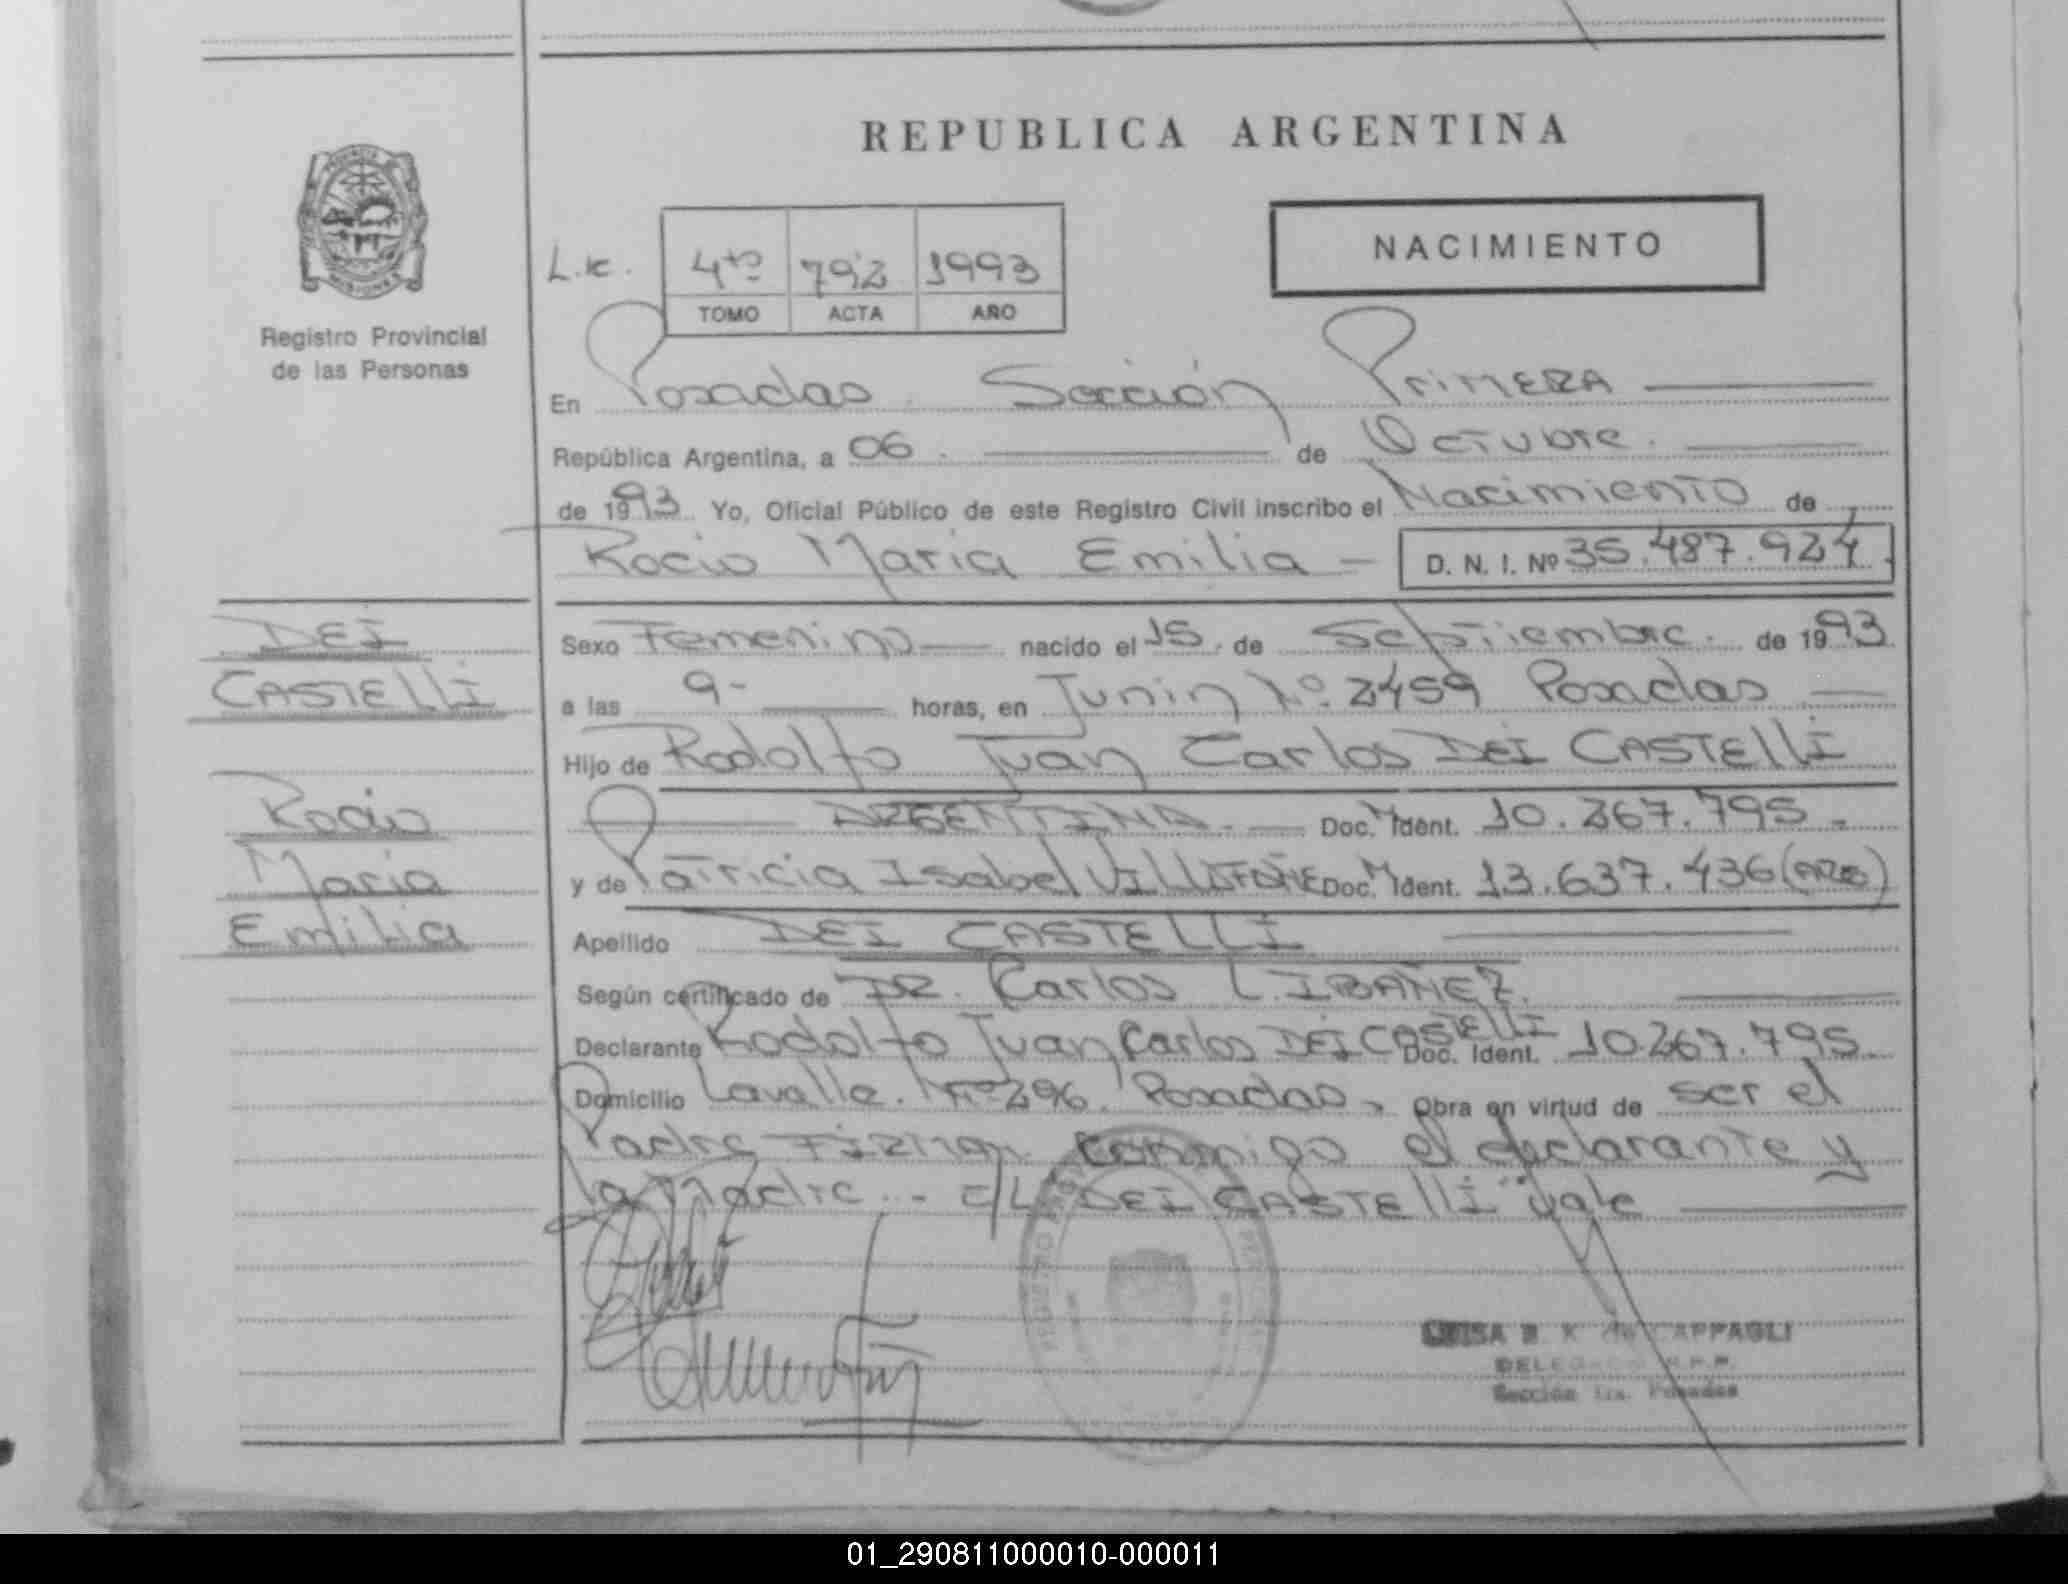 REPUBLICA ARGENTINA
PROVINCIA
MISIONES
Registro Provincial
de las Personas
NACIMIENTO
4to 792 1993
TOMO ACTA AÑO
En Posadas Sección Primera
República Argentina, a 06. de Octubre.
de 1993. Yo, Oficial Público de este Registro Civil inscribo el Nacimiento de
Rocio Maria Emilia - D. N. I. Nº 35.487.924.
DEI
CASTELLI
Rocio
Maria
Emilia
Sexo Femenino nacido el 15. de Septiembre. de 1993
a las 9- horas, en Junin Nº 2459 Posadas
Hijo de Rodolfo Juan Carlos DEI CASTELLI
ARGENTINA. Doc. M Ident. 10.267.795.-
y de Patricia Isabel VILLAFAÑE Doc. M Ident. 13.637.436 (ARG)
Apellido DEI CASTELLI
Según certificado de DR. Carlos L. IBAÑEZ.
Declarante Rodolfo Juan Carlos DEI CASTELLI Doc. Ident. 10.267.795.
Domicilio Lavalle. Nº 296. Posadas, Obra en virtud de ser el
Padre Firman conmigo el declarante y
la Madre.- E/L DEI CASTELLI "vale
DE CAPPAGLI
DELEGADA R.P.P.
Sección 1ra. Posadas
01_290811000010-000011